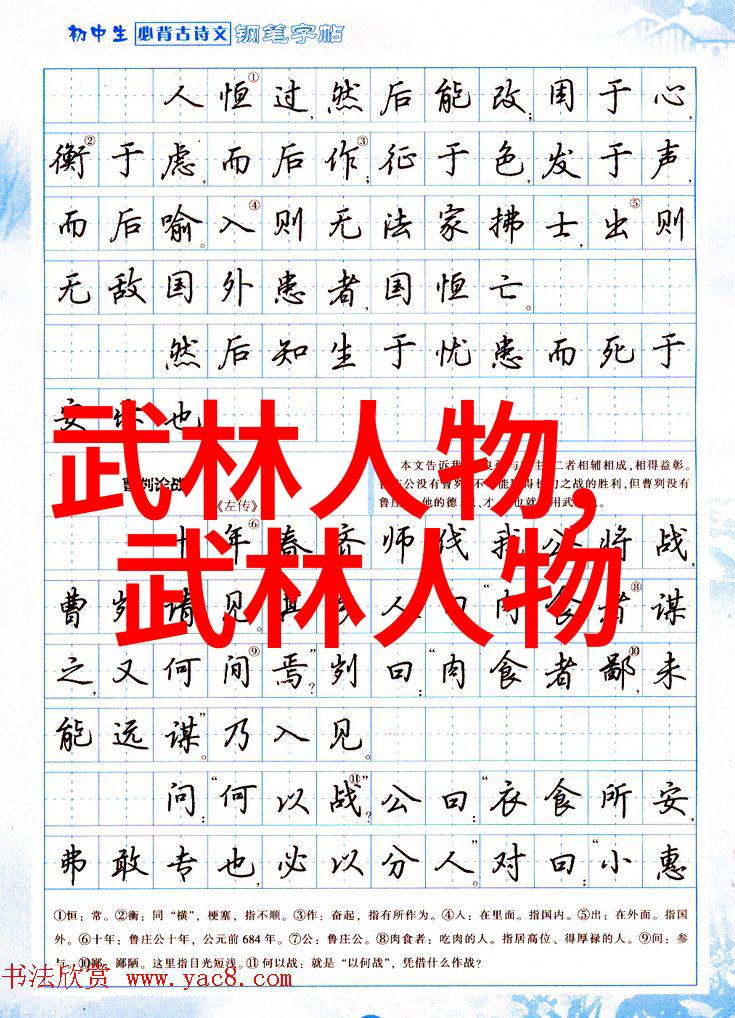 初中生 必背古诗文 钢笔字帖
人恒①过,然后能改;困于心,
衡②于虑,而后作③;征于色,发于声,
而后喻。入④则无法家拂士,出⑤则
无敌国外患者,国恒亡。
然后知生于忧患而死于
安 也
武林人物,
武林人物
曹刿论战
《左传》
本文告诉我 二者相辅相成,相得益彰。
庄公没有曹 之战的胜利,但曹刿没有
鲁庄 他的德 才 也就 用武
十年⑥春齐师伐我公将战,
曹 请见。其 人曰“肉食者⑧谋
之,又何间⑨焉”?刿曰:“肉食者鄙⑩,未
能远谋。”乃入见。
问:“何以战⑪”?公曰:“衣食所安,
弗敢专也,必以分人。”对曰:“小惠
①恒:常。②衡:同“横”,梗塞,指不顺。③作:奋起,指有所作为。④入:在里面。指国内。⑤出:在外面。指国
外。⑥十年:鲁庄公十年,公元前684年。⑦公:鲁庄公。⑧肉食者:吃肉的人。指居高位、得厚禄的人。⑨间:参
与。⑩鄙:鄙陋。这里指目光短浅。⑪何以战:就是“以何战”,凭借什么作战?
书法欣赏 www.yac8.com